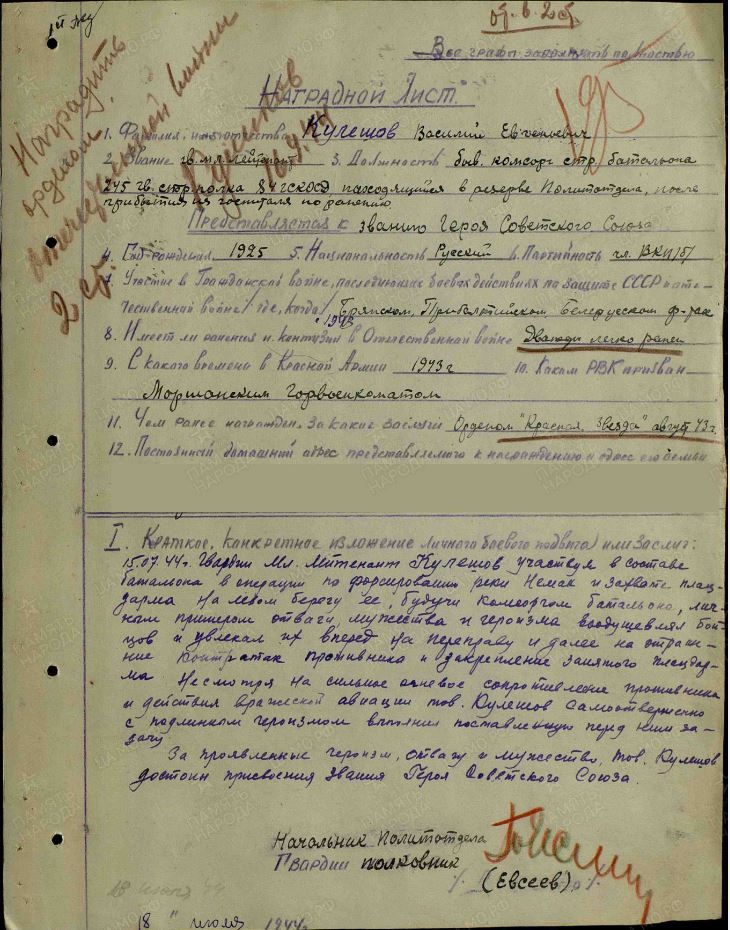 От. в. 2 ст.
Все графы заполнять полностью
Наградить
орденом
Отечественной войны
2 ст.
Наградной Лист.
1. Фамилия, имя, отчество Кулешов Василий Евгеньевич
2. Звание гв. мл. лейтенант 3. Должность быв. комсорг стр. батальона
245 гв. стр. полка 84 гскосд, находящийся в резерве Политотдела, после
прибытия из госпиталя по ранению
Представляется к званию Героя Советского Союза
4. Год рождения 1925 5. Национальность Русский 6. Партийность чл. ВКП/б/
7. Участие в Гражданской войне, последующих боевых действиях по защите СССР и оте-
чественной войне /где, когда/ Брянском, Прибалтийском, Белорусском ф-тах
с 1943
8. Имеет ли ранения и контузии в Отечественной войне Дважды легко ранен
9. С какого времени в Красной Армии 1943 г 10. Каким РВК призван
Моршанским Горвоенкоматом
11. Чем ранее награжден, за какие заслуги Орденом "Красная Звезда" август 43 г.
12. Постоянный домашний адрес представляемого к награждению и адрес его семьи
I. Краткое, конкретное изложение личного боевого подвига или заслуг:
15.07.44 г. Гвардии Мл. Лейтенант Кулешов участвуя в составе
батальона в операции по форсированию реки Неман и захвате плац-
дарма на левом берегу ее, будучи комсоргом батальона, лич-
ным примером отваги, мужества и героизма воодушевлял бой-
цов и увлекал их вперед на переправу и далее на отраже-
ние контратак противника и закрепление занятого плацдар-
ма. Несмотря на сильное огневое сопротивление противника
и действия вражеской авиации тов. Кулешов самоотверженно
с подлинным героизмом выполнил поставленную перед ним за-
дачу.
За проявленные героизм, отвагу и мужество, тов. Кулешов
достоин присвоения звания Героя Советского Союза.
Начальник Политотдела
Гвардии полковник
(Евсеев)
18 июля 44
18 " июля 1944 г.